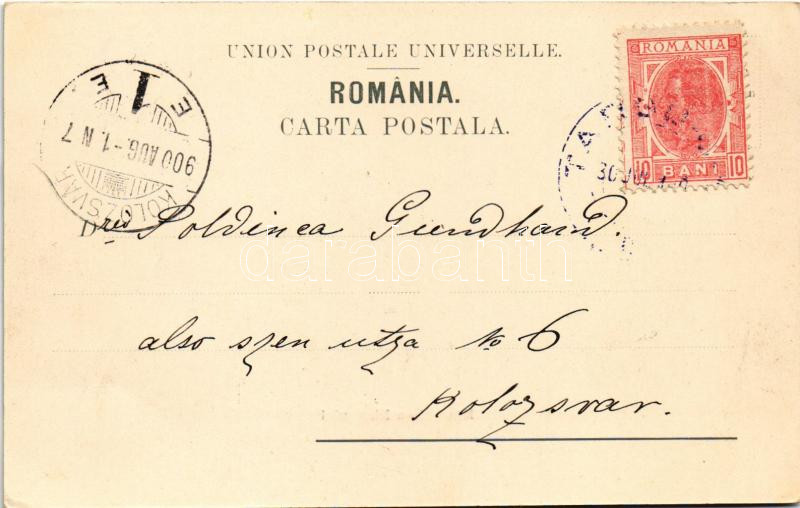 UNION POSTALE UNIVERSELLE.
ROMÂNIA.
CARTA POSTALA.
ROMANIA
10 BANI 10
KOLOZSVÁR
900 AUG.-1. N 7
E I E
30 JUL
darabanth
D rei Poldinca Gundhard.
also szen utza No 6
Kolozsvar.